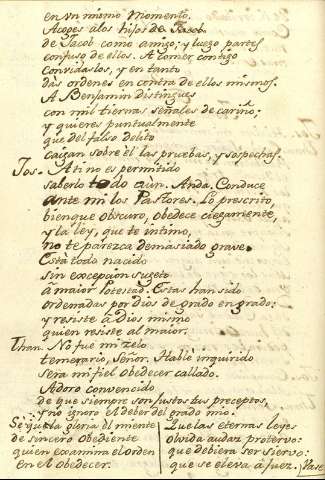 en un mismo momento.
Acoges a los hijos de Jacob
de Jacob como amigo; y luego partes
confuso de ellos. A comer contigo
Convidaslos, y en tanto
das ordenes en contra de ellos mismos.
A Benjamin distingues
con mil tiernas señales de cariño;
y quieres puntualmente
que del falso delito
caigan sobre èl las pruebas, y sospechas.
Jos. A ti no es permitido
saberlo todo aùn. Anda, Conduce
ante mi los Pastores. Lo prescrito,
bienque obscuro, obedece ciegamente,
y la ley, que te intimo,
no te parezca demasiado grave.
Està todo nacido
sin excepcion sugeto
à maior Potestad. Estas han sido
ordenadas por Dios de grado en grado:
y resiste à Dios mismo
quien resiste al maior.
Than. No fue mi zelo
temerario, Señor. Hable inquirido
sera mi fiel obedecer callado.
Adoro convencido
de que siempre son justos tus preceptos,
y no ignoro el deber del grado mio.
Se quita la gloria el miente
de sincero obediente
quien examina el orden
en el obedecer.
Que las eternas leyes
olvida audaz protervo:
que debiera ser siervo:
que se eleva à juez. Vase